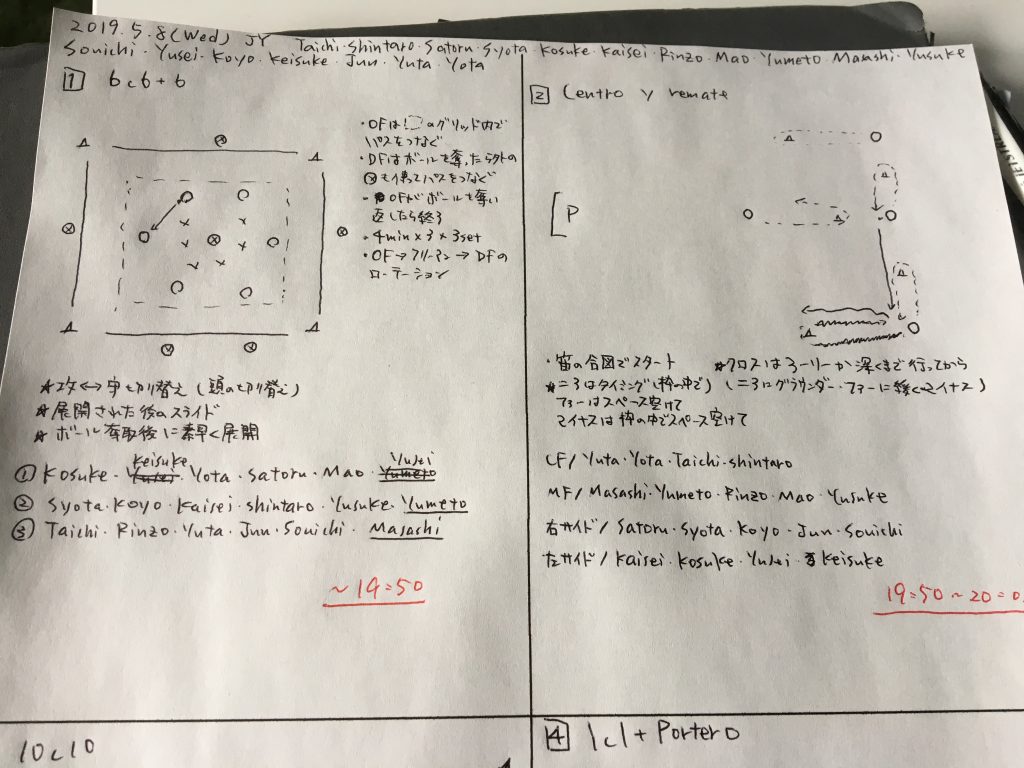 2019.5.8(Wed) JY Taichi・Shintaro・Satoru・Syota・Kosuke・Kaisei・Rinzo・Mao・Yumeto・Masashi・Yusuke
Souichi・Yusei・Koyo・Keisuke・Jun・Yuta・Yota
1 6c6+6
・OFは のグリッド内で
パスをつなぐ
・DFはボールを奪ったら外の
も使ってパスをつなぐ
- OFがボールを奪い
返したら終了
・4min×3×3set
・OF→フリーマン→DFの
ローテーション
★攻↔守切り替え(頭の切り替え)
★展開された後のスライド
★ボール奪取後に素早く展開
① Kosuke・Keisuke・Yota・Satoru・Mao・Yusei
② Syota・Koyo・Kaisei・Shintaro・Yusuke・Yumeto
③ Taichi・Rinzo・Yuta・Jun・Souichi・Masashi
~19:50
2 Centro y remate
P
・笛の合図でスタート
★クロスはアーリーか深くまで行ってから
★ニアはタイミング(枠の中で)
(ニアにグラウンダー・ファーに軽くマイナス)
ファーはスペース空けて
マイナスは枠の中でスペース空けて
CF/Yuta・Yota・Taichi・Shintaro
MF/Masashi・Yumeto・Rinzo・Mao・Yusuke
右サイド/Satoru・Syota・Koyo・Jun・Souichi
左サイド/Kaisei・Kosuke・Yusei・Keisuke
19:50~20:0
10c10
4 1c1+Portero